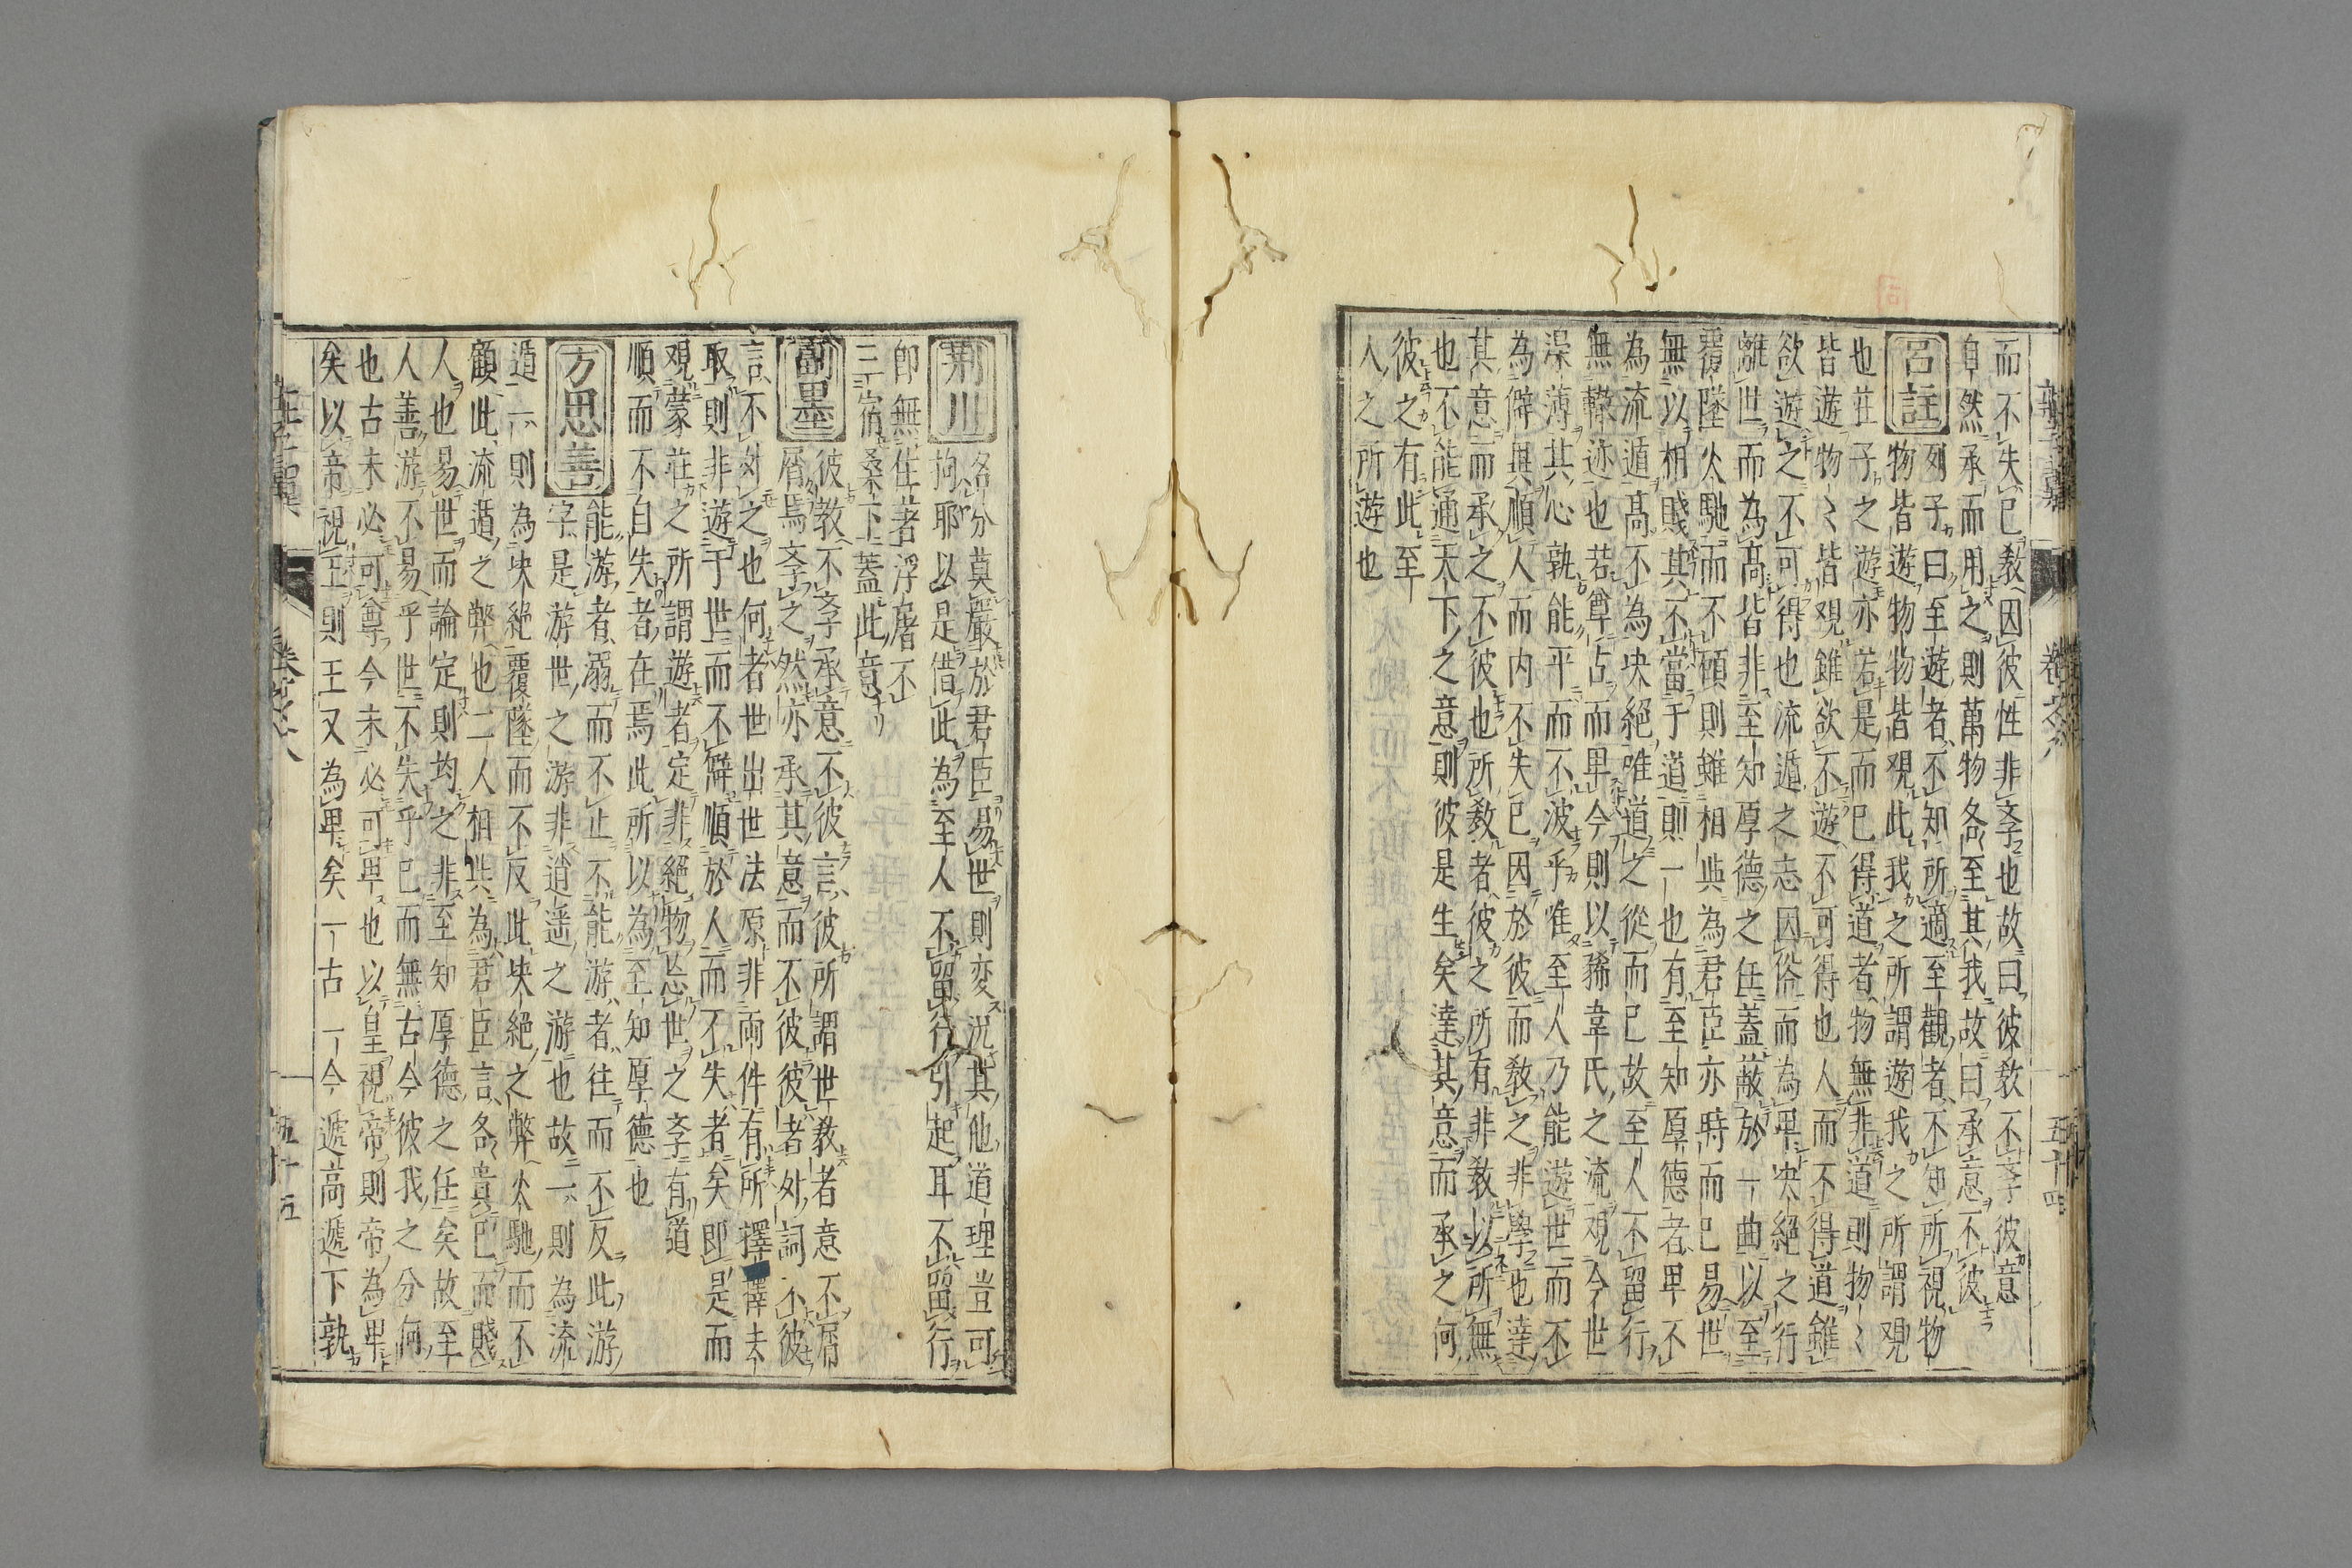 而不失已教因彼性非斈也故曰彼教不斈彼意
自然承而用之則萬物各至其我故曰承意不彼
呂註
列子曰至遊者不知所適至觀者不知所視物
物皆遊物物皆觀此我之所謂遊我之所謂觀
也莊子之遊亦若是而已得道者物無非道則物〻
皆遊物〻皆觀雖欲不遊不可得也人而不得道雖
欲遊之不可得也流遁之志因俗而為卑决絕之行
離世而為高皆非至知厚德之任蓋蔽於一曲以至
覆墜火馳而不顧則雖相與為君臣亦時而已易世
無以相賤其不當于道則一也有至知厚德者卑不
為流遁高不為决絕唯道之從而已故至人不留行
無轍迹也若尊古而卑今則以狶韋氏之流觀今世
澡薄其心孰能平而不波乎唯至人乃能遊世而不
為僻與順人而内不失已因於彼而教之非學也達
其意而承之不彼也所教者彼之所有非教以所無
也不能通天下之意則彼是生矣達其意而承之何
彼之有此至
人之所遊也
荆川
名分莫嚴於君臣易世則変況其他道理豈可
拘耶以是借此為至人不留行引起耳不留行
即無住著浮屠不
三宿桑下蓋此意
副墨
彼教不斈承意不彼言彼所謂世教者意不屑
屑焉斈之然亦承其意而不彼彼者外詞不彼
言不外之也何者世出世法原非兩件有所擇去
取則非遊于世而不僻順於人而不失者矣即是而
觀蒙莊之所謂遊者定非絕物忘世之斈有道
順而不自失者在焉此所以為至知厚德也
方思善
能游者溺而不止不能游者往而不反此游
字是游世之游非逍遥之游也故二則為流
遁一則為决絕覆墜而不反此决絕之弊火馳而不
顧此流遁之弊也二人相與為君臣言各貴已而賤
人也易世而論定則均之非至知厚德之任矣故至
人善游不易乎世不失乎已而無古今彼我之分何
也古未必可尊今未必可卑也以皇視帝則帝為卑
矣以帝視王則王又為卑矣一古一今遞高遞下孰
莊子翼
卷之六
五十四
莊子翼
卷之六
五十五